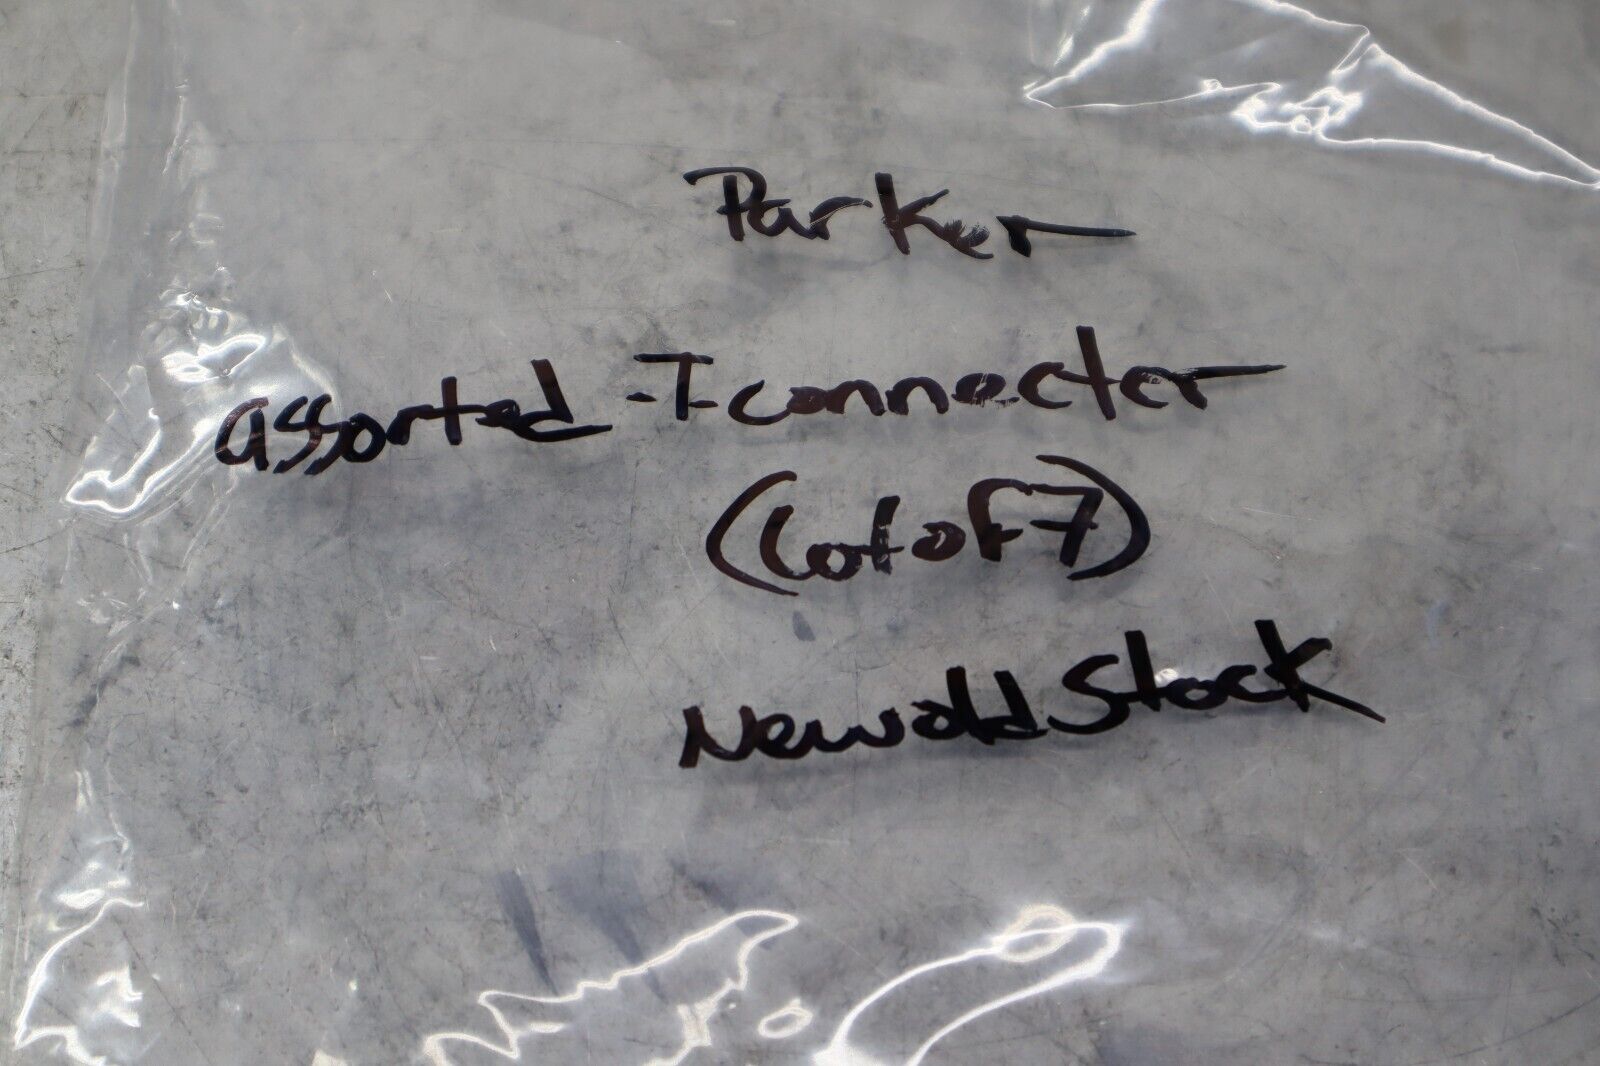 Parker
assorted -T-connecter
(Lot of 7)
New old Stock